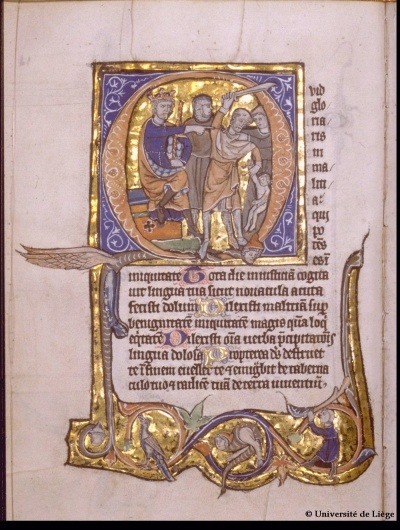 uid
glo
ria
ris
in
ma
liti
a:
qui
po
tes
es in
iniquitate Tota die iniusticiam cogita
uit lingua tua sicut nouacula acuta
fecisti dolum Dilexisti malitiam sup
benignitatem iniquitatem magis qm loq
eqtatem Dilexisti oia uerba pcipitationis
lingua dolosa Propterea ds destruet
te i finem euellet te & emigbit de taberna
culo tuo & radicem tuam de terra uiuentium
© Université de Liège